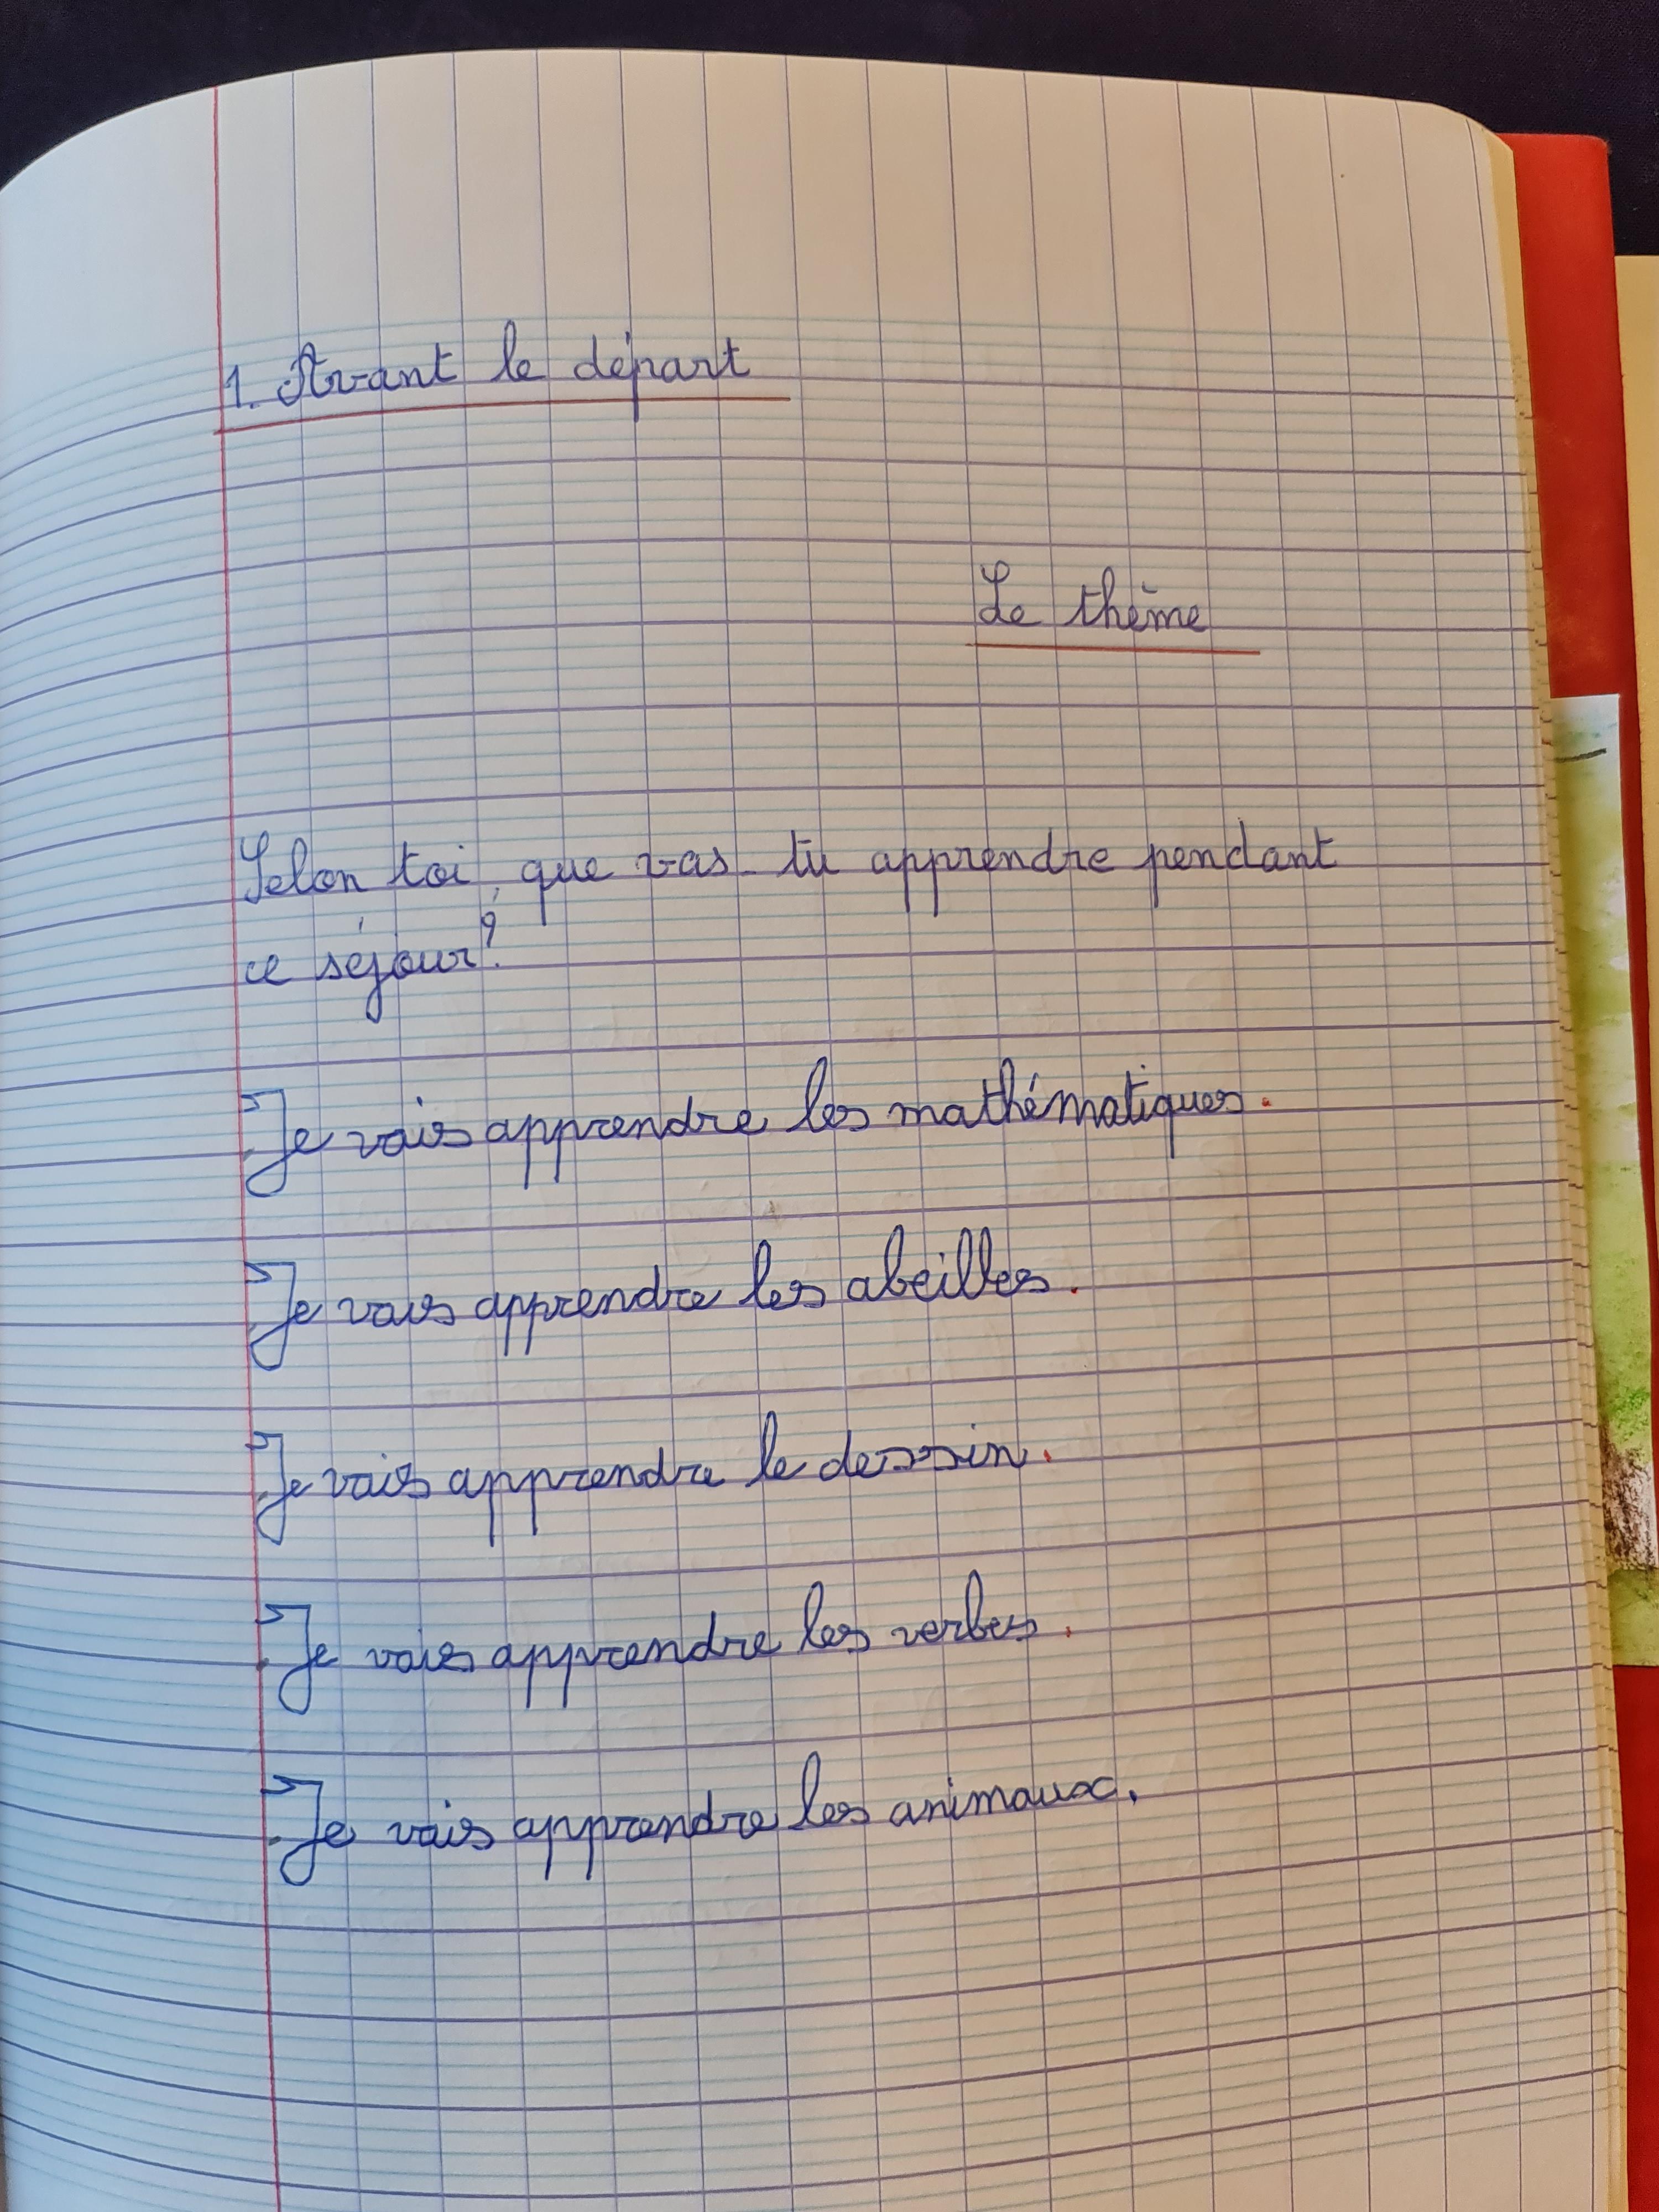 1. Avant le départ
Le thème
Selon toi, que vas-tu apprendre pendant
ce séjour?
Je vais apprendre les mathématiques.
Je vais apprendre les abeilles.
Je vais apprendre le dessin.
Je vais apprendre les verbes.
Je vais apprendre les animaux.